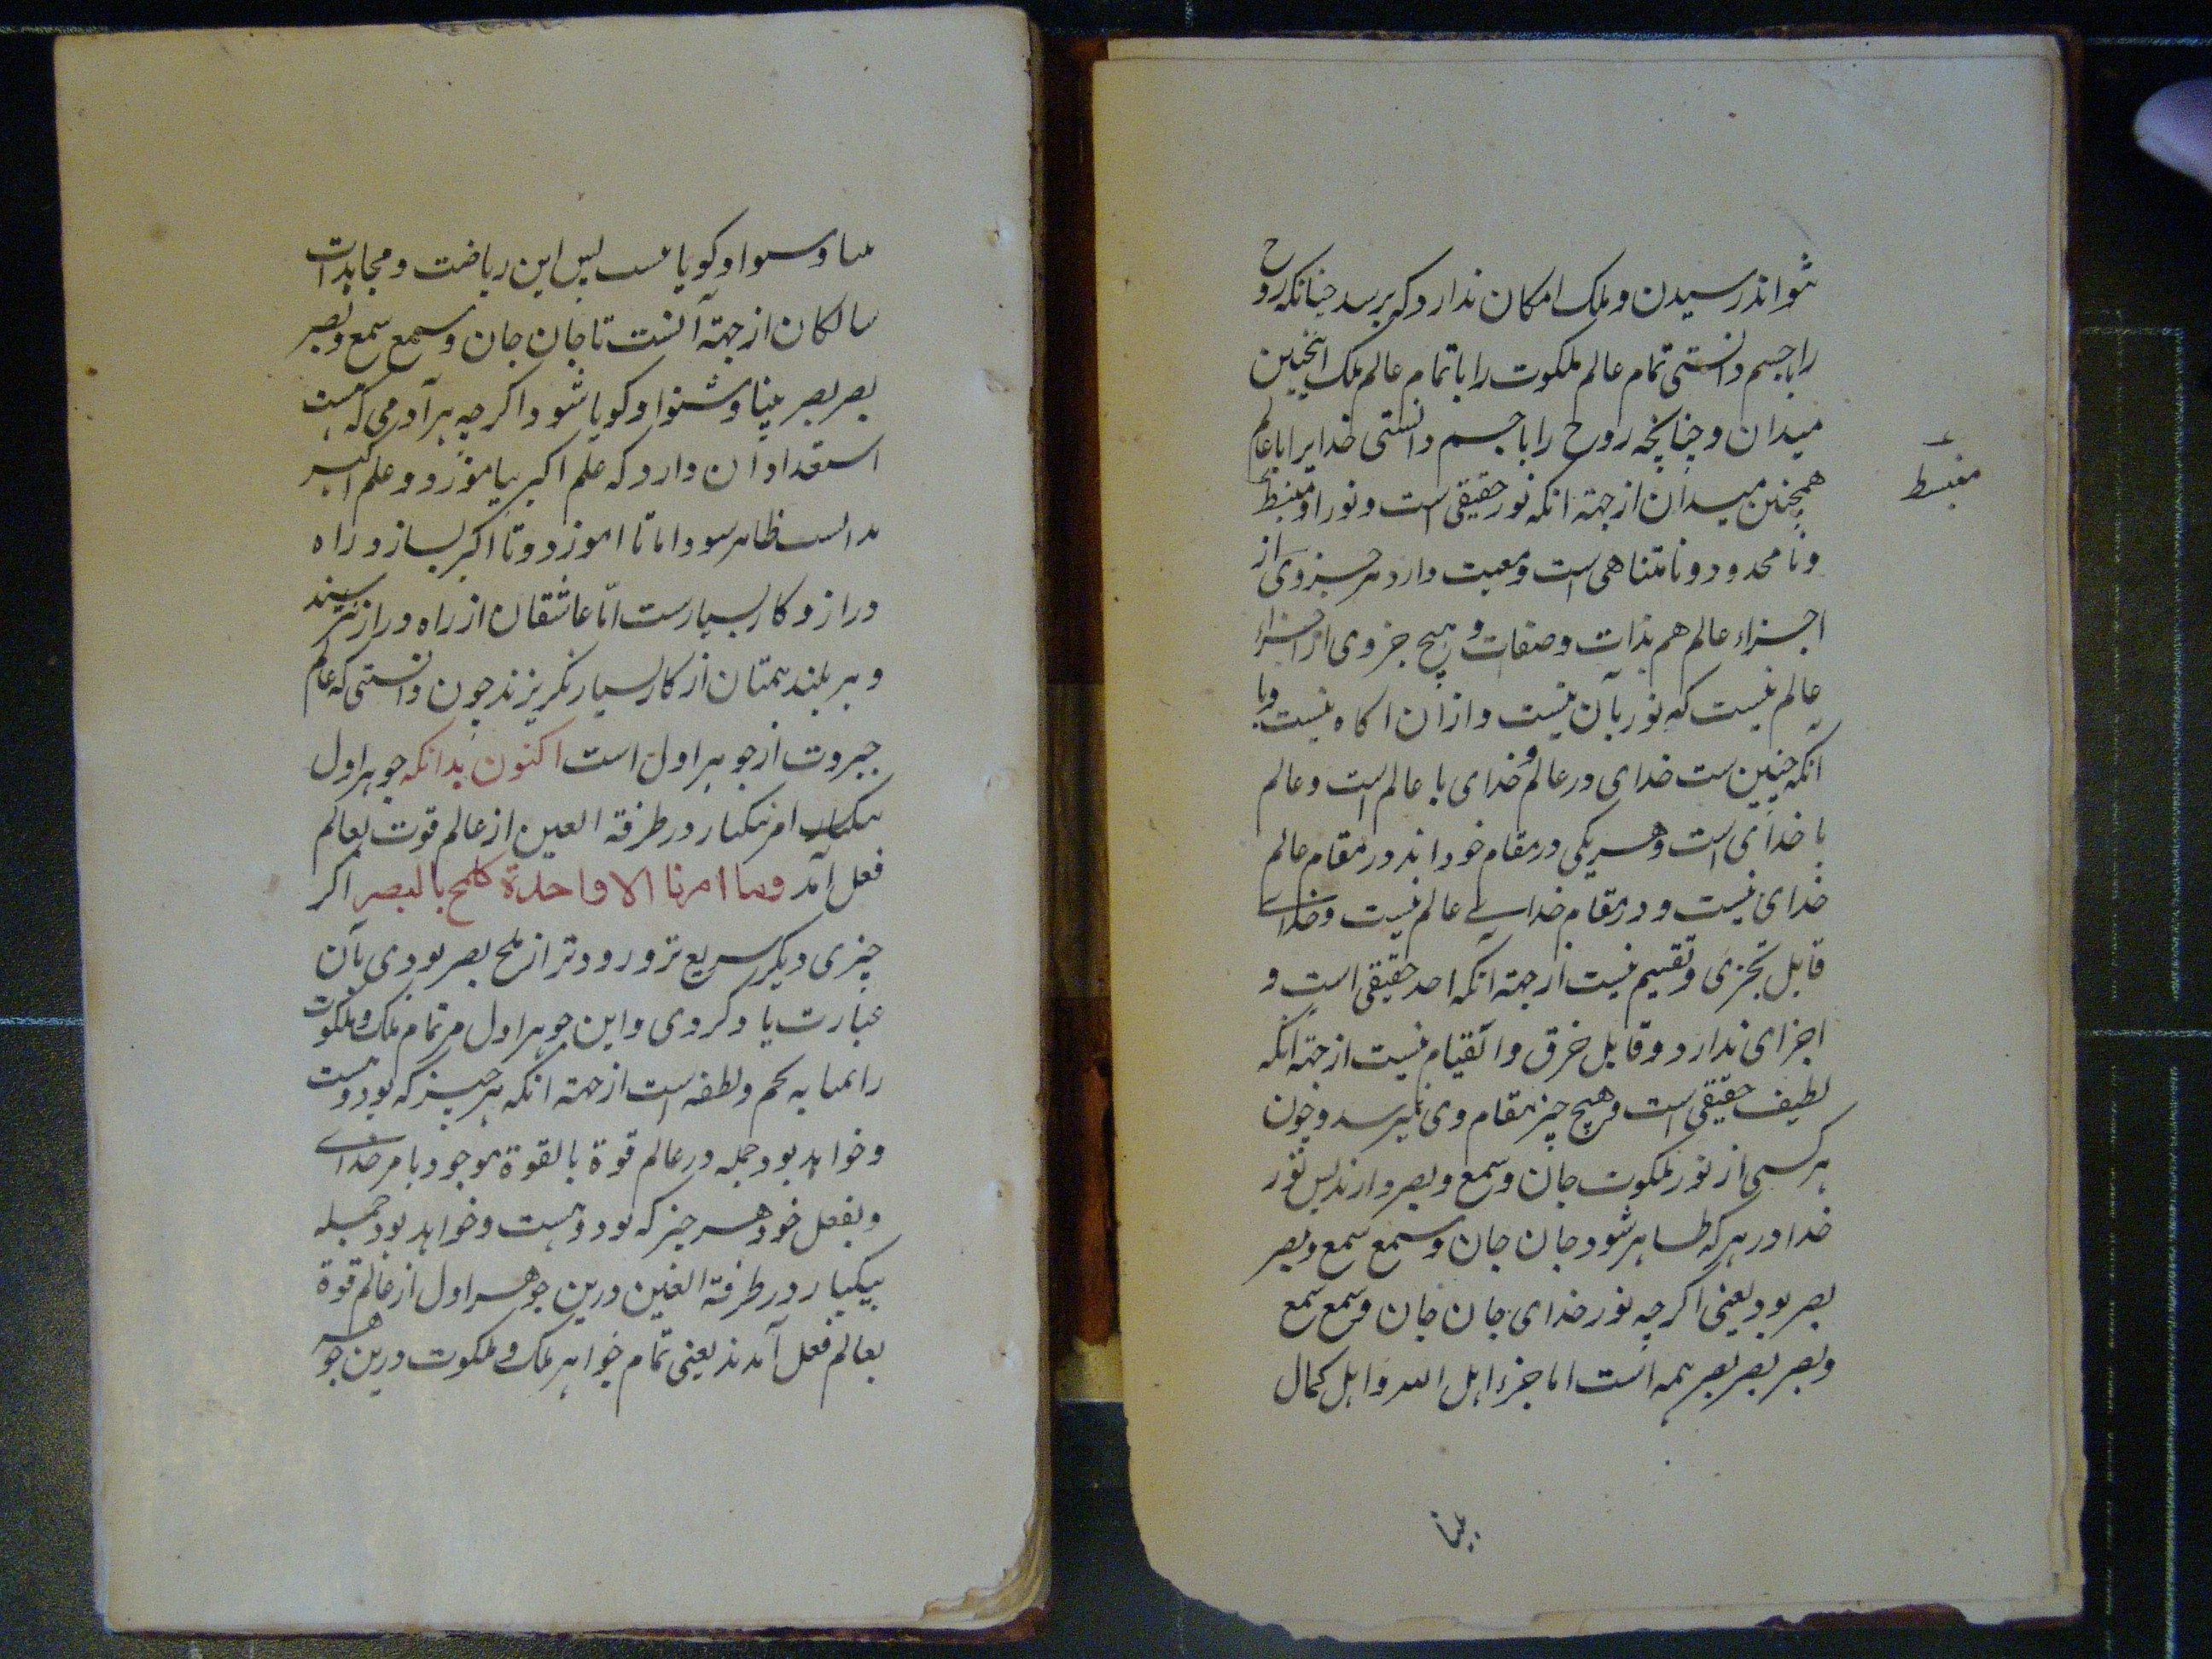 نتواند رسیدن و ملک امکان ندارد که برسد چنانکه روح
را با جسم دانستی تمام عالم ملکوت را با تمام عالم ملک اینچنین
میدان و چنانچه روح را با جسم دانستی خدایرا با عالم
همچنین میدان از جهة انکه نور حقیقی است و نور او منبسط
منبسط
و نا محدود و نا متناهی است و معیت دارد هر جزوی از
اجزاء عالم هم بذات و صفات و هیچ جزوی از اجزاء
عالم نیست که نور بآن نیست و ازان اکاه نیست و با
انکه چنین ست خدای در عالم و خدای با عالم است و عالم
با خدای است و هر یکی در مقام خود اند در مقام عالم
خدای نیست و در مقام خدای عالم نیست و خدای
قابل تجزی و تقسیم نیست از جهة انکه احد حقیقی است و
اجزای ندارد و قابل خرق و التیام نیست از جهة انکه
لطیف حقیقی است و هیچ چیز بمقام وی نمیرسد و چون
هر کسی از نور ملکوت جان و سمع و بصر دارند پس نور
خدا در هر که ظاهر شود جان جان و سمع سمع و بصر
بصر بود یعنی اکر چه نور خدای جان جان و سمع سمع
و بصر بصر همه است اما جزء اهل الله و اهل کمال
بینا
بینا و شنوا و کویا نیست پس این ریاضت و مجاهدات
سالکان از جهة آنست تا جان جان و سمع سمع و بصر
بصر بصر بینا و شنوا و کویا شود اکر چه هر آدمی که هست
استعداد آن دارد که علم اکبر بیاموزد و علم اکبر
بدانست ظاهر شود اما تا اموزد و تا اکبر بسازد راه
دراز و کار بسیارست امّا عاشقان از راه دراز نترسند
و هر بلند همتان از کار بسیار نکریزند چون دانستی که عالم
جبروت از جوهر اول است اکنون بدانکه جوهر اول
بیکبار امر بیکبار در طرفة العین از عالم قوت بعالم
فعل آمد وما امرنا الا واحدة کلمح بالبصر اکر
چیزی دیکر سریع تر و زودتر از لمح بصر بودی بآن
عبارت یاد کردی و این جوهر اول مر تمام ملک و ملکوت
را بمثابه تخم و نطفه است از جهة انکه هر چیز که بود و هست
و خواهد بود جمله در عالم قوة بالقوة موجود بامر خدای
و بفعل خود هر چیز که بود و هست و خواهد بود جمله
بیکبار در طرفة العین درین جوهر اول از عالم قوة
بعالم فعل آمدند یعنی تمام جواهر ملک و ملکوت درین جوهر